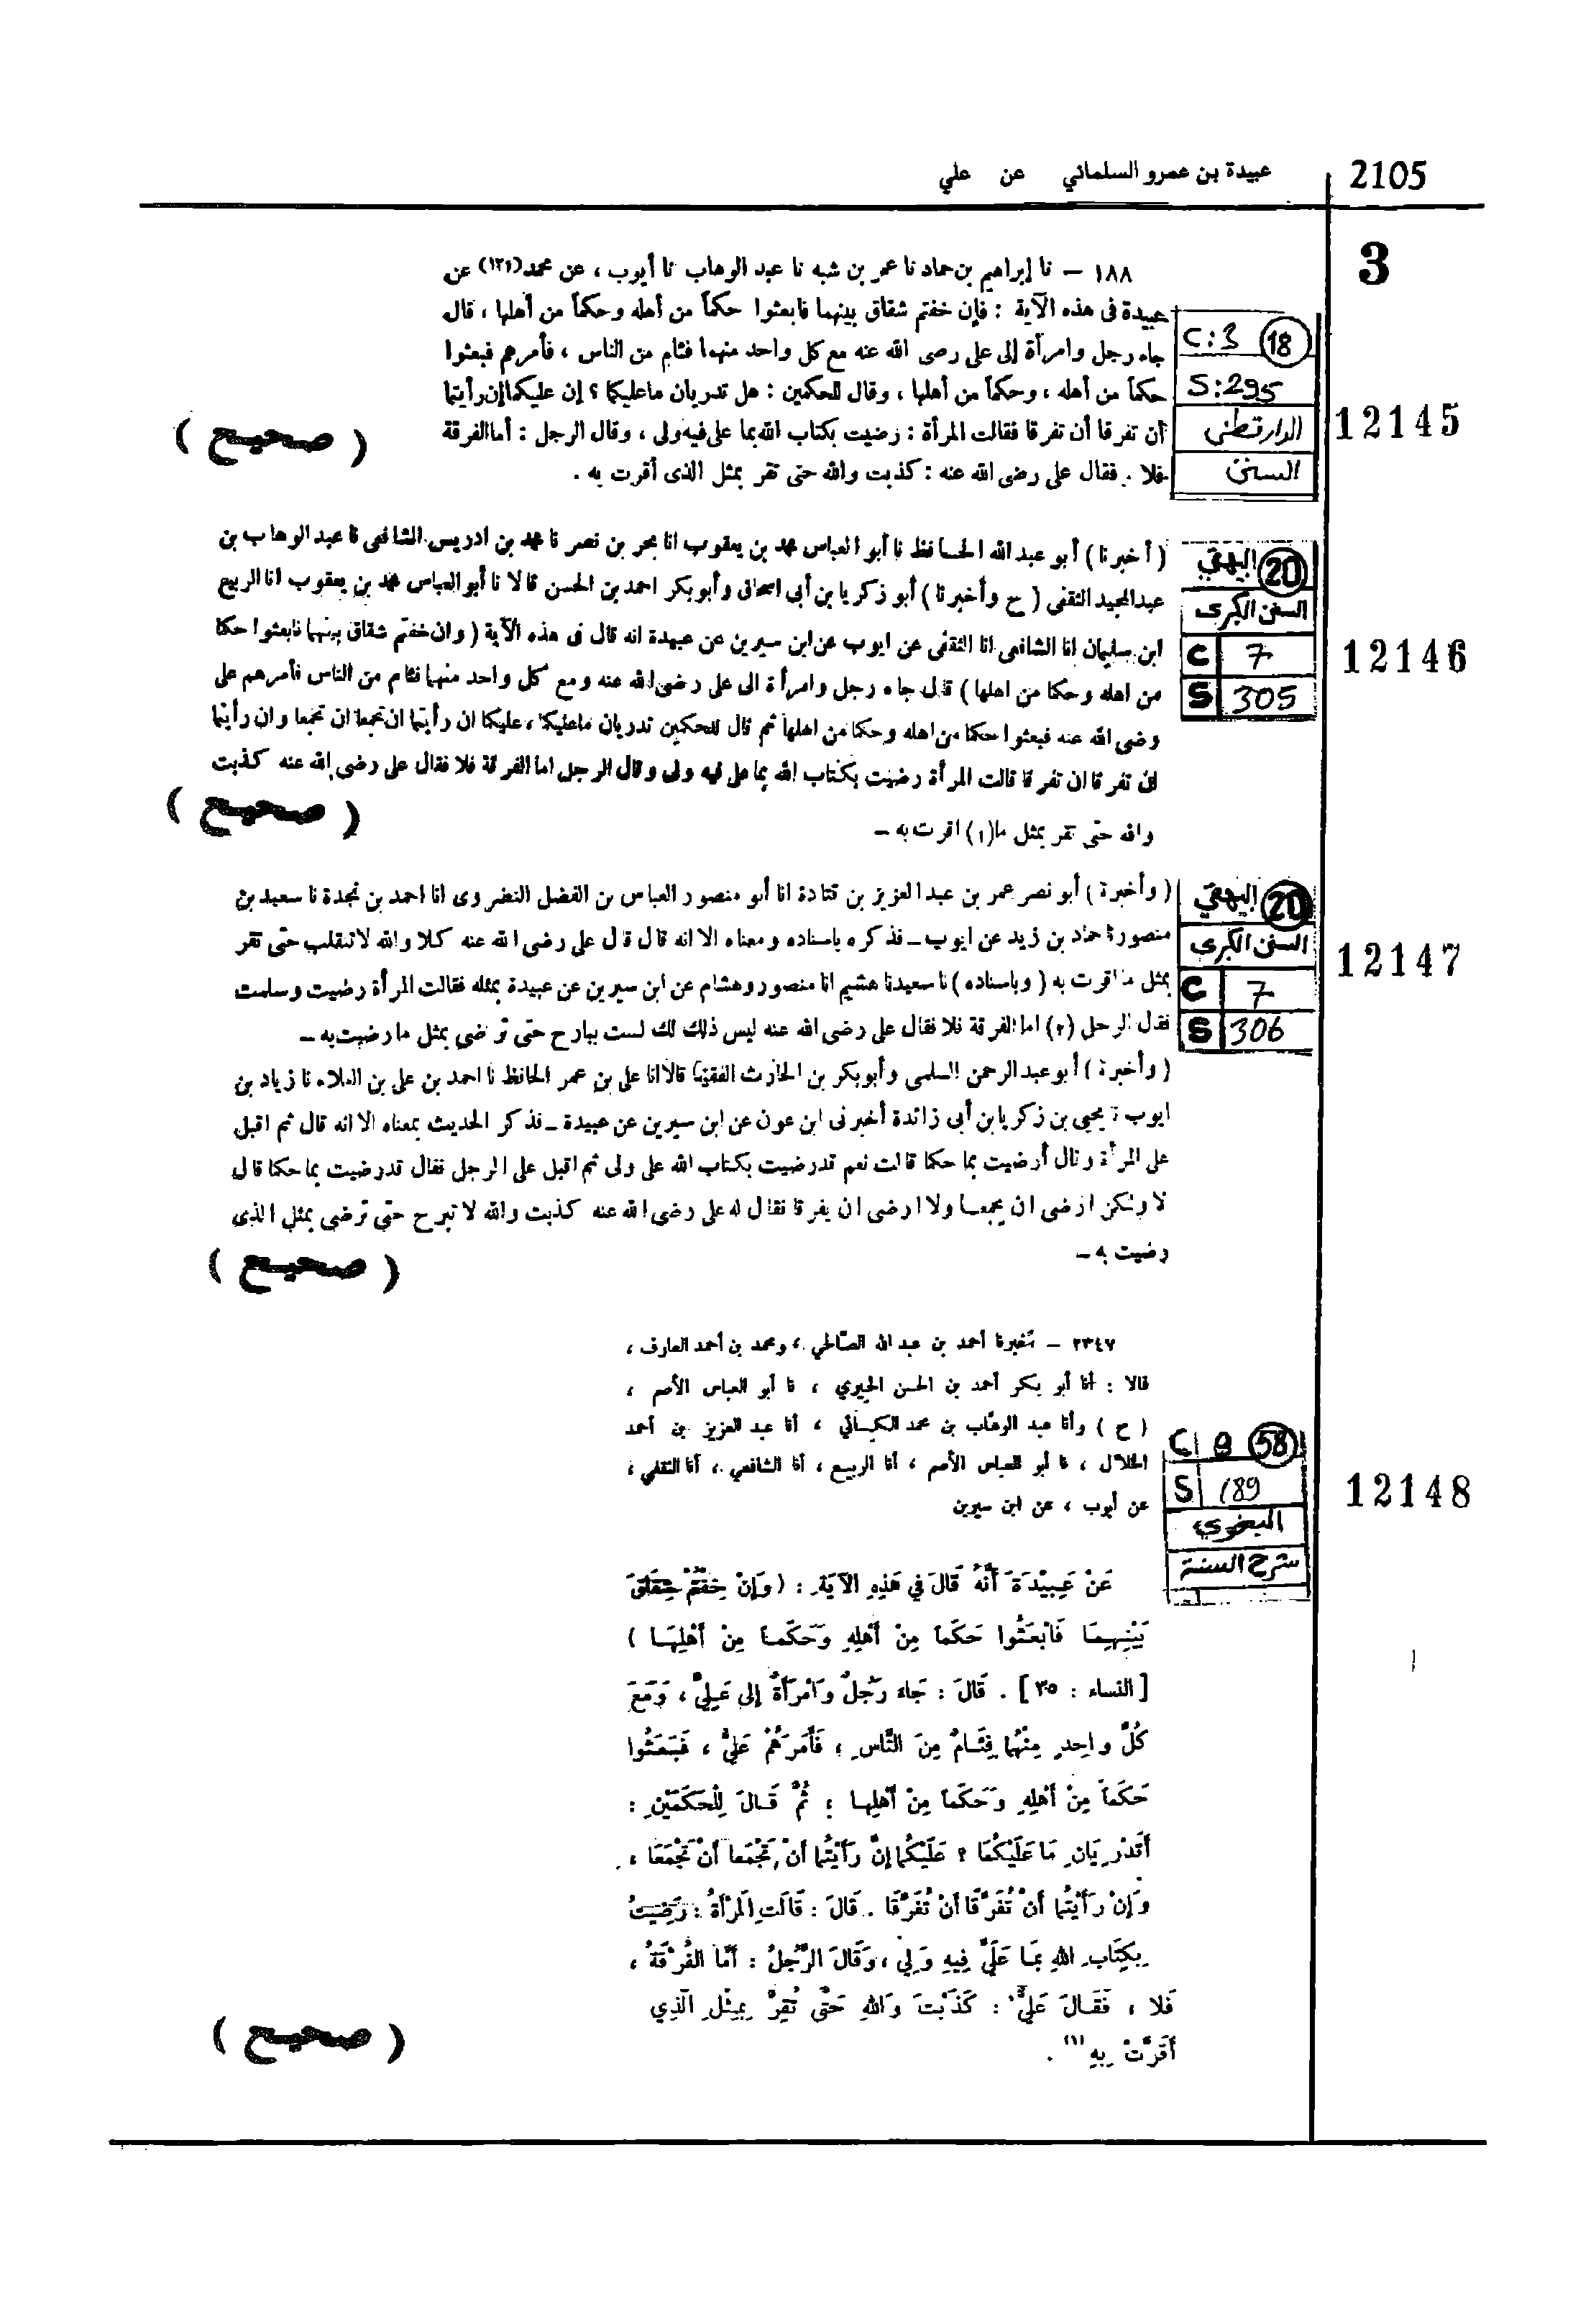 2105
عبيدة بن عمرو السلماني عن علي
3
١٨٨ – نا إبراهيم بن حماد نا عمر بن شبه نا عبد الوهاب نا أيوب ، عن محمد(١٣٦) عن
عبيدة فى هذه الآية : فإن خفتم شقاق بينهما فابعثوا حكماً من أهله وحكماً من أهلها ، قال
جاء رجل وامرأة إلى على رضى الله عنه مع كل واحد منهما فئام من الناس ، فأمرهم فبعثوا
حكماً من أهله ، وحكماً من أهلها ، وقال للحكمين : هل تدريان ماعليكما ؟ إن عليكما إن رأيتما
أن تفرقا أن تفرقا فقالت المرأة : رضيت بكتاب الله بما على فيه ولى ، وقال الرجل : أما الفرقة
فلا . فقال على رضى الله عنه : كذبت والله حتى تقر بمثل الذى أقرت به .
( صحيح )
C:3 18
S:295
الدارقطني
السنن
12145
( أخبرنا ) أبو عبد الله الحافظ نا أبو العباس محمد بن يعقوب انا بحر بن نصر نا محمد بن ادريس الشافعى نا عبد الوهاب بن
عبد المجيد الثقفى ( ح وأخبرنا ) أبو زكريا بن أبى اسحاق وأبو بكر احمد بن الحسن قالا نا أبو العباس محمد بن يعقوب انا الربيع
ابن سليمان انا الشافعى انا الثقفى عن ايوب عن ابن سيرين عن عبيدة انه قال فى هذه الآية ( وان خفتم شقاق بينهما فابعثوا حكما
من اهله وحكما من اهلها ) قال جاء رجل وامرأة الى على رضى الله عنه ومع كل واحد منهما فئام من الناس فأمرهم على
رضى الله عنه فبعثوا حكما من اهله وحكما من اهلها ثم قال للحكمين تدريان ماعليكما ، عليكما ان رأيتما ان تجمعا ان تجمعا وان رأيتما
ان تفرقا ان تفرقا قالت المرأة رضيت بكتاب الله بما على فيه ولى وقال الرجل اما الفرقة فلا فقال على رضى الله عنه كذبت
والله حتى تقر بمثل ما(١) اقرت به –
( صحيح )
البيهقي 20
السنن الكبرى
C 7
S 305
12146
( وأخبرنا ) أبو نصر عمر بن عبد العزيز بن قتادة انا أبو منصور العباس بن الفضل النضروى انا احمد بن نجدة نا سعيد بن
منصور نا حماد بن زيد عن ايوب – فذكره باسناده ومعناه الا انه قال قال على رضى الله عنه كلا والله لا تنقلب حتى تقر
بمثل ما اقرت به ( وباسناده ) نا سعيد نا هشيم انا منصور وهشام عن ابن سيرين عن عبيدة بمثله فقالت المرأة رضيت وسلمت
فقال الرجل (٢) اما الفرقة فلا فقال على رضى الله عنه ليس ذلك لك لست ببارح حتى ترضى بمثل ما رضيت به –
( وأخبرنا ) أبو عبد الرحمن السلمى وأبو بكر بن الحارث الفقيه قالا انا على بن عمر الحافظ نا احمد بن على بن العلاء نا زياد بن
ايوب نا يحيى بن زكريا بن أبى زائدة أخبرنى ابن عون عن ابن سيرين عن عبيدة – فذكر الحديث بمعناه الا انه قال ثم اقبل
على المرأة وقال أرضيت بما حكما قالت نعم قد رضيت بكتاب الله على ولى ثم اقبل على الرجل فقال قد رضيت بما حكما قال
لا ولكن ارضى ان يجمعا ولا ارضى ان يفرقا فقال له على رضى الله عنه كذبت والله لا تبرح حتى ترضى بمثل الذى
رضيت به –
( صحيح )
البيهقي 20
السنن الكبرى
C 7
S 306
12147
٢٣٤٧ – أخبرنا أحمد بن عبد الله الصّالحي ، ومحمد بن أحمد العارف ،
قالا : أنا أبو بكر أحمد بن الحسن الحيري ، نا أبو العباس الأصم ،
( ح ) وأنا عبد الوهّاب بن محمد الكسائي ، أنا عبد العزيز بن أحمد
الخلال ، نا أبو العباس الأصم ، أنا الربيع ، أنا الشافعي ، أنا الثقفي ،
عن أيوب ، عن ابن سيرين
عَنْ عَبِيْدَةَ أَنَّهُ قَالَ في هَذِهِ الآيَةِ : ( وَإنْ خِفْتُمْ شِقَاقَ
بَيْنِهِمَا فَابْعَثُوا حَكَماً مِنْ أَهْلِهِ وَحَكَماً مِنْ أَهْلِهَا )
[ النساء : ٣٥ ] . قَالَ : جَاءَ رَجُلٌ وَامْرَأَةٌ إلى عَلِيٍّ ، وَمَعَ
كُلِّ واحِدٍ مِنْهُما فِئَامٌ مِنَ النَّاسِ ، فَأَمَرَهُمْ عَلِيٌّ ، فَبَعَثُوا
حَكَماً مِنْ أَهْلِهِ وَحَكَماً مِنْ أَهْلِها ، ثُمَّ قَالَ لِلْحَكَمَيْنِ :
أَتَدْرِيَانِ مَا عَلَيْكُمَا ؟ عَلَيْكُما إنْ رَأَيْتُما أَنْ تَجْمَعا أَنْ تَجْمَعَا ،
وَإنْ رَأَيْتُما أَنْ تُفَرِّقَا أَنْ تُفَرِّقَا . قَالَ : قَالَتِ المَرْأَةُ : رَضِيتُ
بِكِتَابِ اللهِ بِمَا عَلَيَّ فِيهِ وَلِي ، وَقَالَ الرَّجُلُ : أَمَّا الفُرْقَةُ ،
فَلا ، فَقَالَ عَلِيٌّ : كَذَبْتَ وَاللهِ حَتَّى تُقِرَّ بِمِثْلِ الَّذِي
أَقَرَّتْ بِهِ (١) .
( صحيح )
C 9 58
S 189
البغوي
شرح السنة
12148